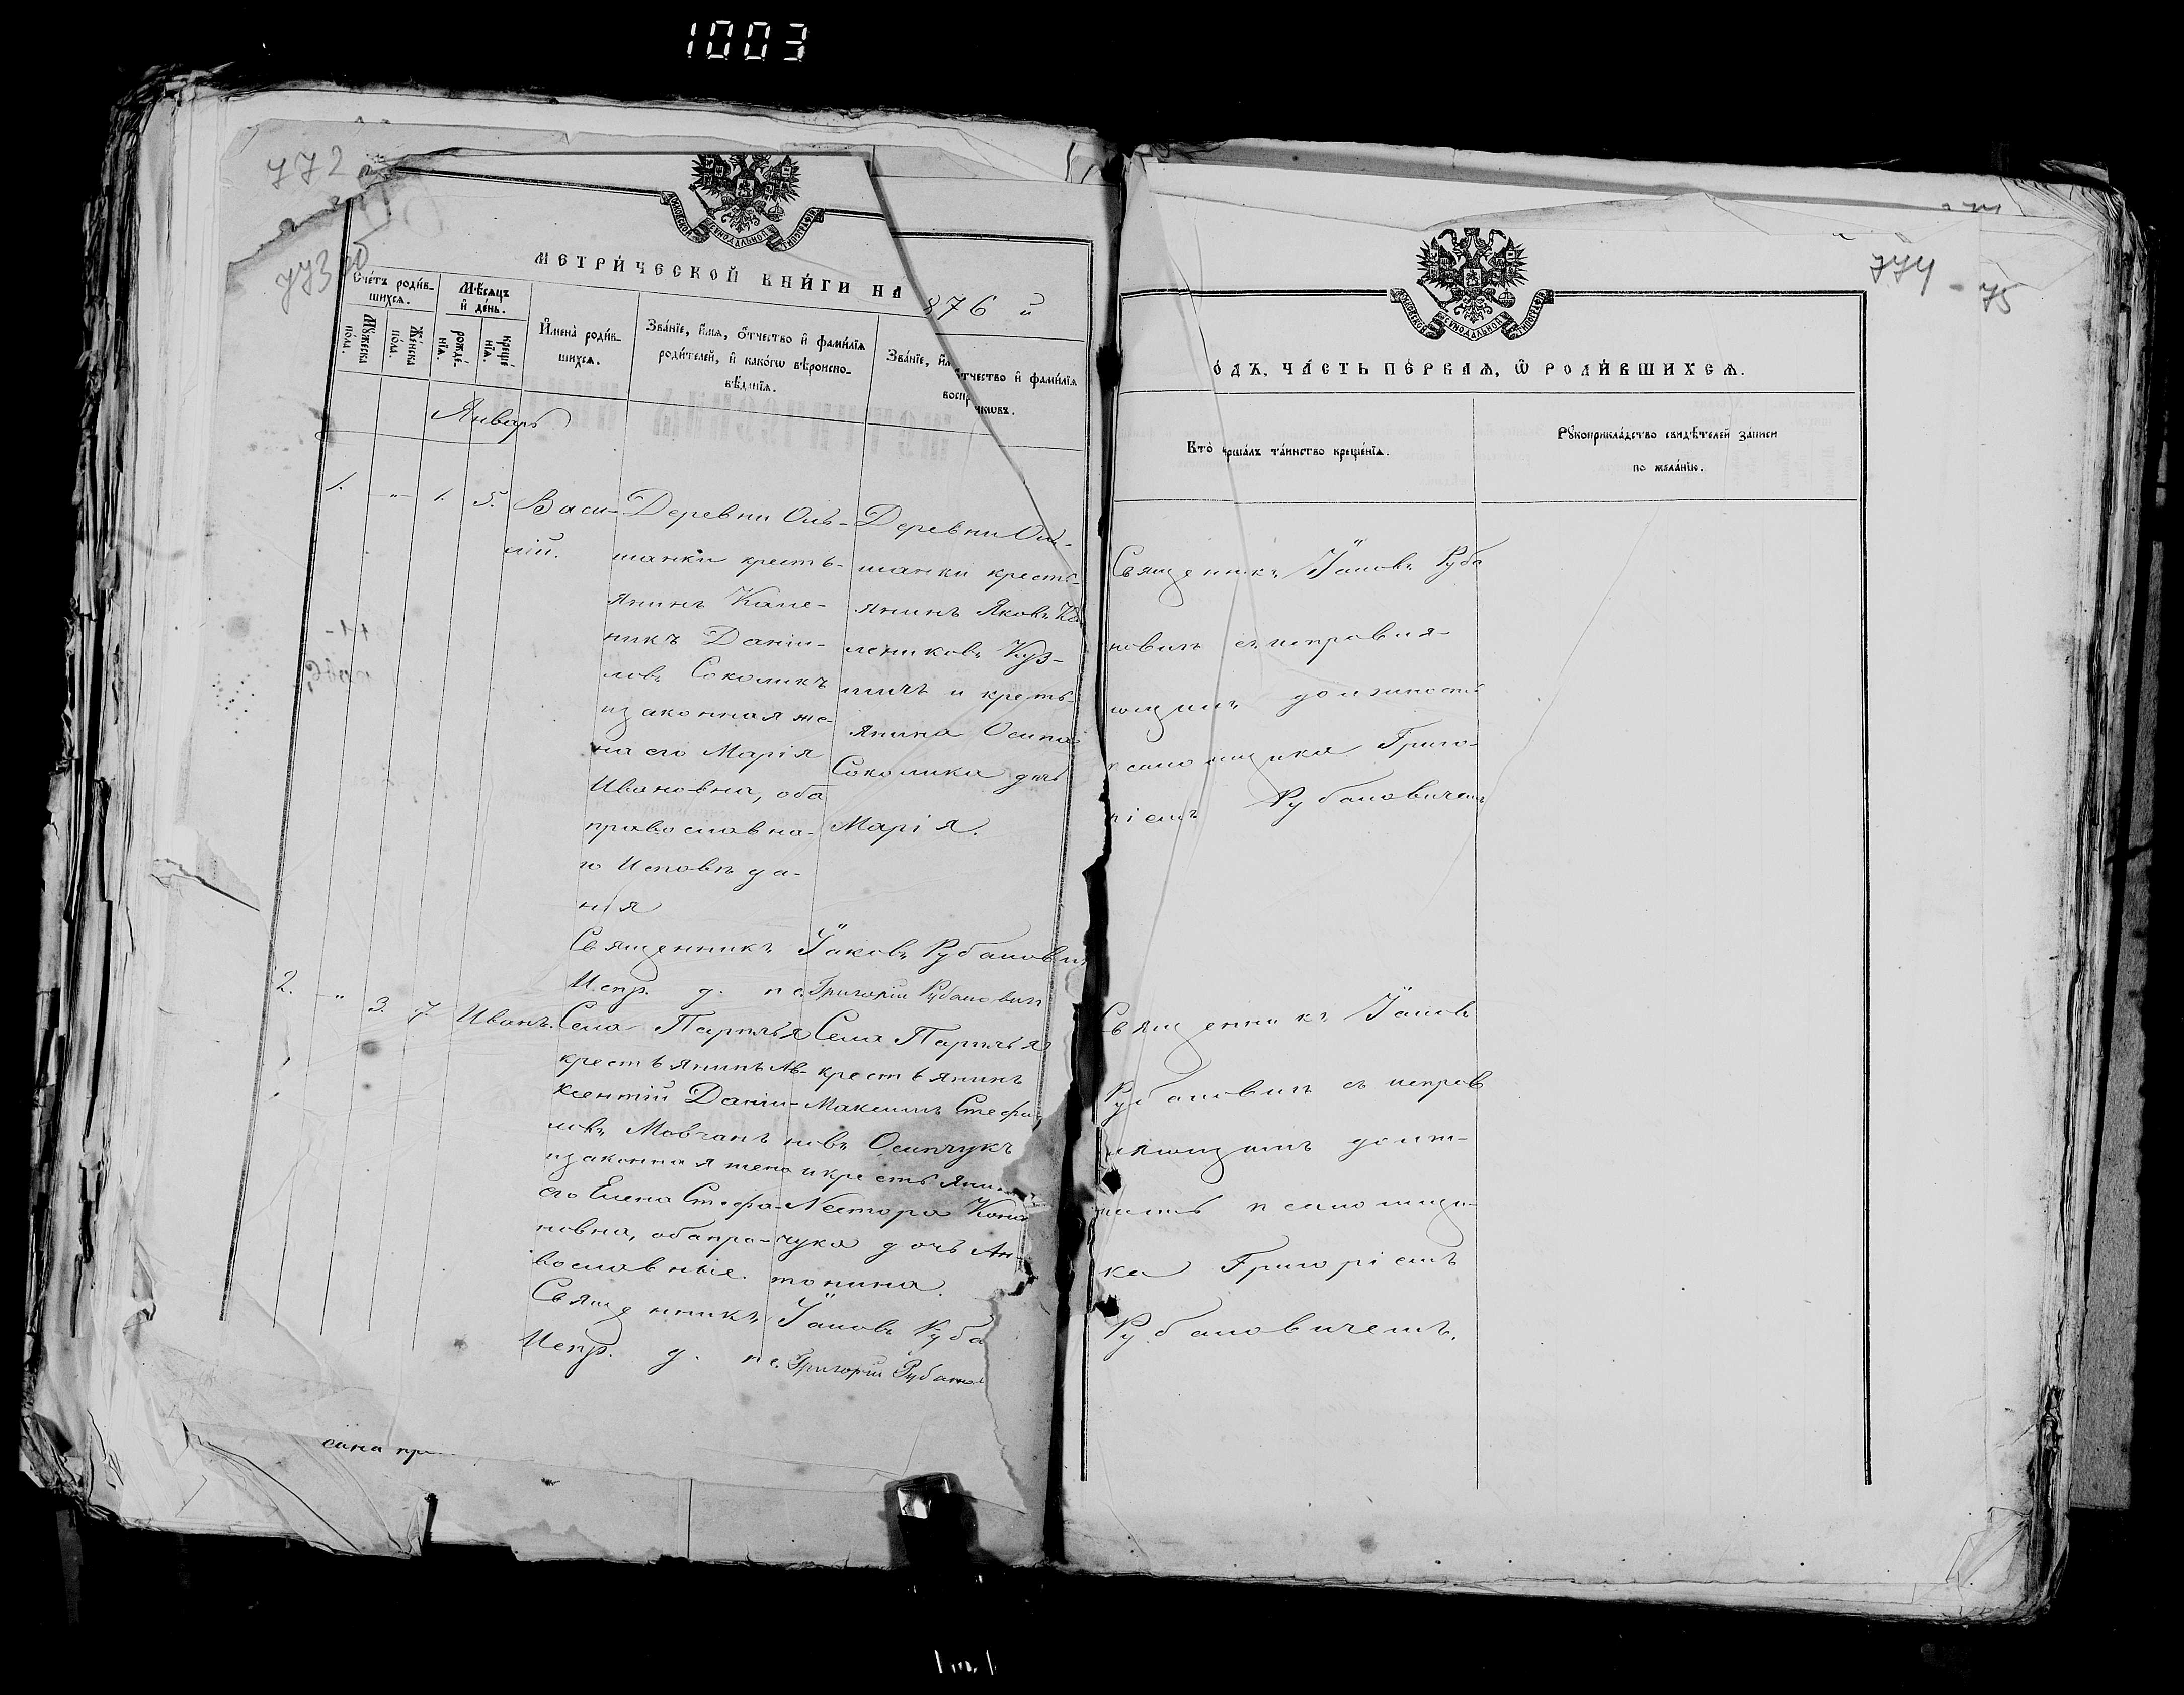 1003
772
773 об
774
75
МОСКОВСКОЙ СѴНОДАЛЬНОЙ ТИПОГРАФІИ
МЕТРИ́ЧЕСКОЙ КНИ́ГИ НА
876 й
Сче́тъ роди́в-
шихсѧ.
Мꙋ́жеска
пола.
Же́нска
пола.
Мѣ́сяцъ
и҆ де́нь.
рожде́-
нїѧ.
креще́
нїѧ.
И҆мена̀ роди́в-
шихсѧ.
Зва́нїе, и҆́мѧ, ѻ҆́тчество и҆ фами́лїѧ
роди́телей, и҆ како́гѡ вѣроиспо-
вѣ́данїѧ.
Зва́нїе, и҆́м
ѻ҆тчество и҆ фами́лїѧ
воспр
никѡвъ.
Январь
1.
-"-
1.
5.
Васи-
лій.
Деревни Оль-
шанки кресть-
янинъ Кале-
никъ Даніи-
ловъ Соколикъ
и законная же-
на его Марія
Ивановна, оба
православна-
го Исповѣда-
нія
Деревни Оль-
шанки кресть-
янинъ Яковъ Ка
лениковъ Куз-
мичъ и кресть-
янина Осипа
Соколика дочь
Марія.
Священникъ Іаковъ Рубановичъ
Испр. д. пс. Григорій Рубанович
2.
"
3.
7.
Иванъ.
Села
крестьянинъ Ав-
ксентій Даніи-
ловъ Мовчанъ
и законная жена
его Елена Стефа-
новна, оба пра-
вославные.
Села
крестьянинъ
Максимъ Стефа
новъ Осипчукъ
и крестьяни
Нестора
чука дочь Ан-
тонина.
Священникъ Іаковъ Руба
Испр. д. пс. Григорій Рубанов
сина пр
МОСКОВСКОЙ СѴНОДАЛЬНОЙ ТИПОГРАФІИ
О́ДЪ, ЧА́СТЬ ПЕ́РВАѦ, Ѡ҆ РОДИ́ВШИХСѦ.
Кто̀ соверша́лъ та́инство креще́нїѧ.
Рꙋкоприкла́дство свидѣ́телей за́писи
по жела́нїю.
Священникъ Іаковъ Руба
новичъ съ исправля-
ющимъ должность
псаломщика Григо-
ріемъ Рубановичемъ
Священникъ Іаковъ
Рубановичъ съ исправ
ляющимъ долж-
ность псаломщи-
ка Григоріемъ
Рубановичемъ.